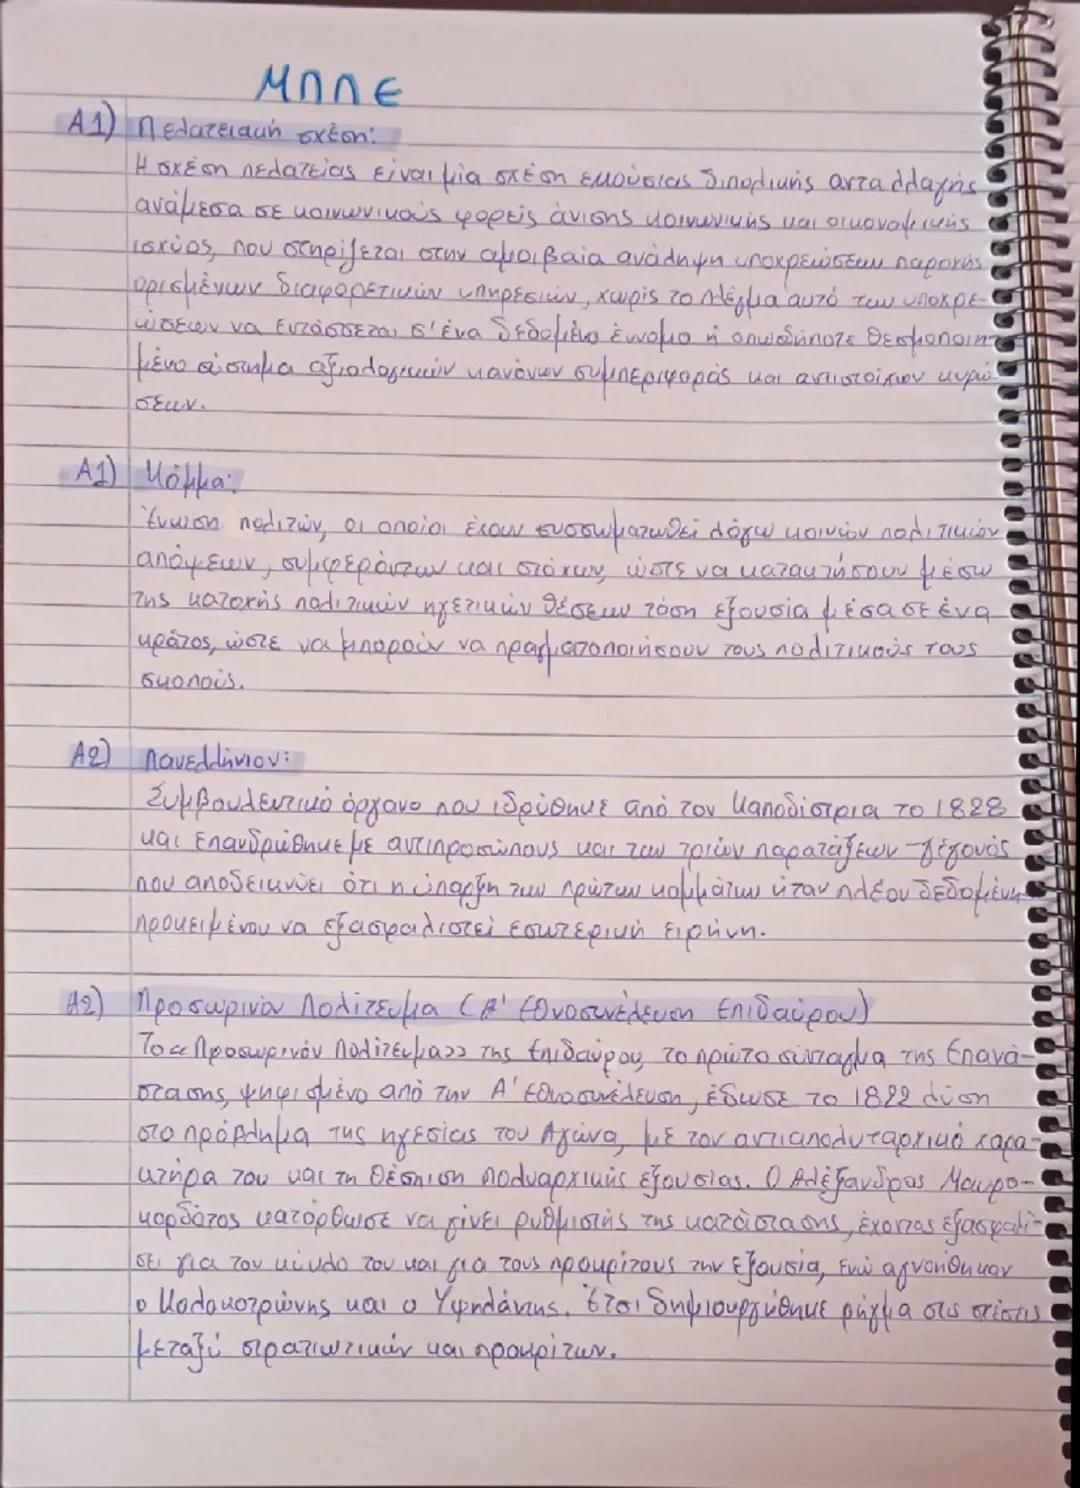 ΜΠΠΕ
Α1) Πελατειακή σχέση:
Η σχέση πελατείας είναι μία σχέση εκούσιας διπολικής ανταλλαγής
ανάμεσα σε κοινωνικούς φορείς άνισης κοινωνικής και οικονομικής
ισχύος, που στηρίζεται στην αμοιβαία ανάληψη υποχρεώσεων παροχής
ορισμένων διαφορετικών υπηρεσιών, χωρίς το πλέγμα αυτό των υποχρε-
ώσεων να εντάσσεται σ' ένα δεδομένο έννομο ή οπωσδήποτε θεσμοποιη-
μένο σύστημα αξιολογικών κανόνων συμπεριφοράς και αντιστοίχων κυρώ-
σεων.
Α1) Κόμμα:
Ένωση πολιτών, οι οποίοι έχουν συσσωματωθεί λόγω κοινών πολιτικών
απόψεων, συμφερόντων και στόχων, ώστε να κατακτήσουν μέσω
της κατοχής πολιτικών ηγετικών θέσεων τόση εξουσία μέσα σε ένα
κράτος, ώστε να μπορούν να πραγματοποιήσουν τους πολιτικούς τους
σκοπούς.
Α2) Πανελλήνιον:
Συμβουλευτικό όργανο που ιδρύθηκε από τον Καποδίστρια το 1828
και επανδρώθηκε με αντιπροσώπους και των τριών παρατάξεων - γεγονός
που αποδεικνύει ότι η ύπαρξη των πρώτων κομμάτων ήταν πλέον δεδομένη
προκειμένου να εξασφαλιστεί εσωτερική ειρήνη.
Α2) Προσωρινόν Πολίτευμα (Α' Εθνοσυνέλευση Επιδαύρου)
Το «Προσωρινόν Πολίτευμα» της Επιδαύρου, το πρώτο σύνταγμα της Επανά-
στασης, ψηφισμένο από την Α' Εθνοσυνέλευση, έδωσε το 1822 λύση
στο πρόβλημα της ηγεσίας του Αγώνα, με τον αντιαπολυταρχικό χαρα-
κτήρα του και τη θέσπιση πολυαρχικής εξουσίας. Ο Αλέξανδρος Μαυρο-
κορδάτος κατόρθωσε να γίνει ρυθμιστής της κατάστασης, έχοντας εξασφαλί-
σει για τον κύκλο του και για τους προκρίτους την εξουσία, ενώ αγνοήθηκαν
ο Κολοκοτρώνης και ο Υψηλάντης. Έτσι δημιουργήθηκε ρήγμα στις σχέσεις
μεταξύ στρατιωτικών και προκρίτων.